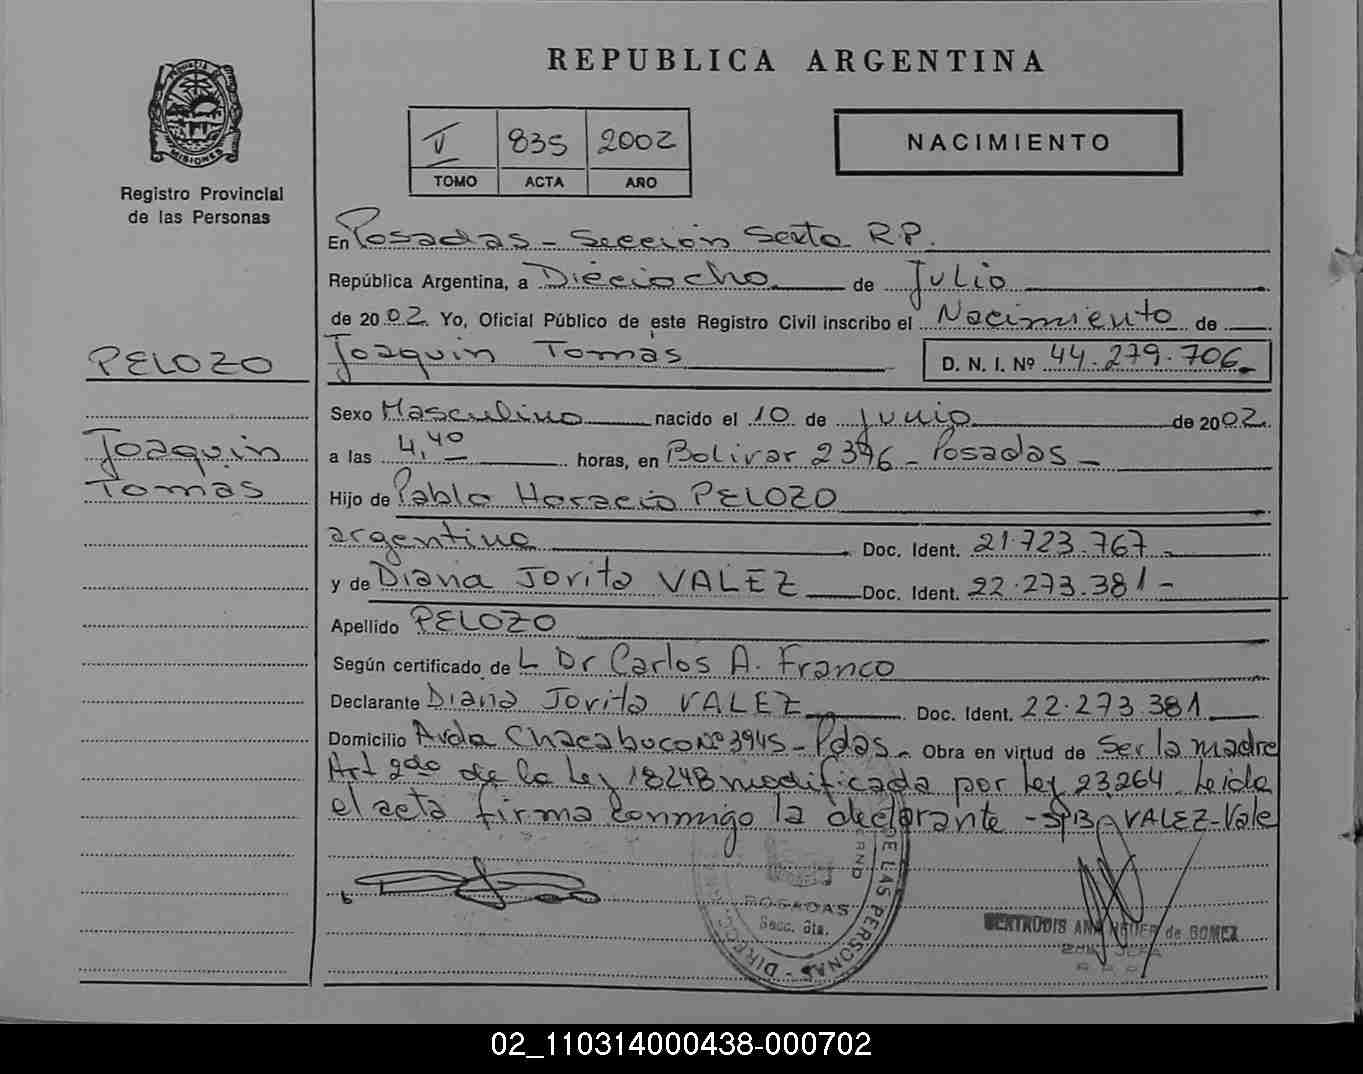 REPUBLICA ARGENTINA
PROVINCIA DE
MISIONES
Registro Provincial
de las Personas
V 835 2002
TOMO ACTA AÑO
NACIMIENTO
En Posadas - Sección Sexta R.P.
República Argentina, a Dieciocho de Julio
de 2002. Yo, Oficial Público de este Registro Civil inscribo el Nacimiento de
Joaquin Tomás D. N. I. Nº 44.279.706
PELOZO
Joaquin
Tomás
Sexo Masculino nacido el 10 de Junio de 2002.
a las 4,40 horas, en Bolivar 2376 - Posadas -
Hijo de Pablo Horacio PELOZO
argentino Doc. Ident. 21.723.767
y de Diana Jorita VALEZ Doc. Ident. 22.273.381 -
Apellido PELOZO
Según certificado de L Dr Carlos A. Franco
Declarante Diana Jorita VALEZ Doc. Ident. 22.273.381
Domicilio Avda Chacabuco Nº 3945 - Pdas - Obra en virtud de Ser la madre
Art 2do de la Ley 18248 modificada por ley 23.264. Leida
el acta firma conmigo la declarante - S/B VALEZ - Vale
DE LAS PERSONAS
POSADAS
Secc. 6ta.
GERTRUDIS ANA de GOMEZ
02_110314000438-000702